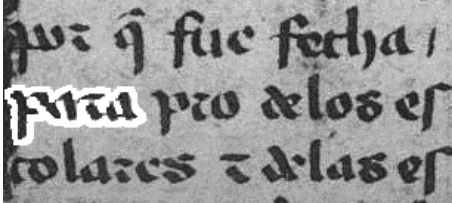 por q̄ fue fecha /
para pro delos es
colares ⁊ delas es